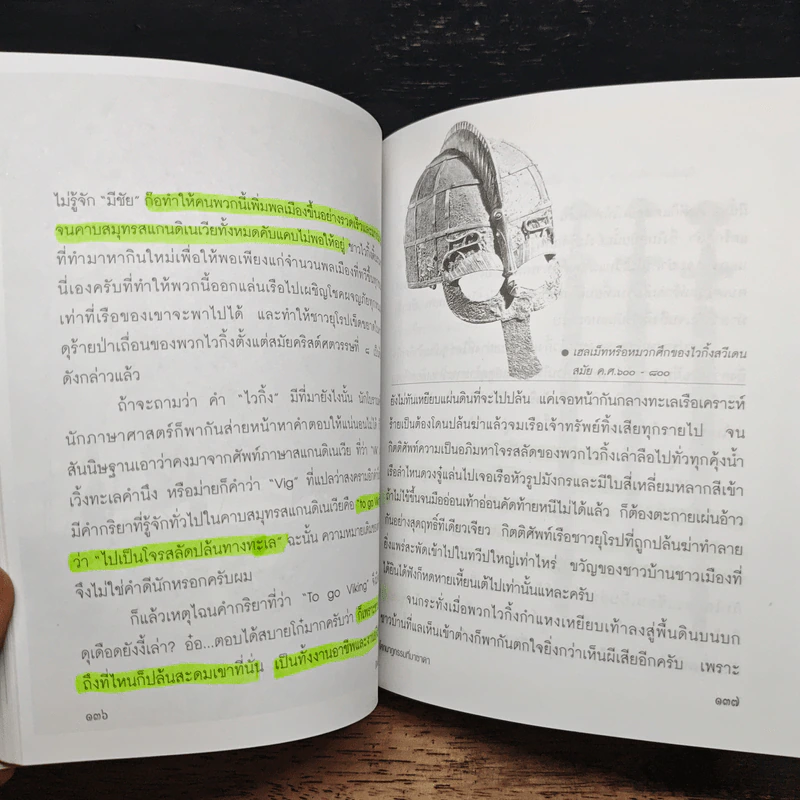 ไม่รู้จัก “มีชัย” ก็อทำให้คนพวกนี้เพิ่มพลเมืองขึ้นอย่างรวดเร็ว
จนคาบสมุทรสแกนดิเนเวียทั้งหมดคับแคบไม่พอให้อยู่
ที่ทำมาหากินใหม่เพื่อให้พอเพียงแก่จำนวนพลเมืองที่
นี่เองครับที่ทำให้พวกนี้ออกแล่นเรือไปเผชิญโชคผจญภัย
เท่าที่เรือของเขาจะพาไปได้ และทำให้ชาวยุโรปเข็ดขยาด
ดุร้ายป่าเถื่อนของพวกไวกิ้งตั้งแต่สมัยคริสต์ศตวรรษที่ ๘
ดังกล่าวแล้ว
ถ้าจะถามว่า คำ “ไวกิ้ง” มีที่มายังไงนั้น
นักภาษาศาสตร์ก็พากันส่ายหน้าหาคำตอบให้แน่นอนไม่ได้
สันนิษฐานเอาว่าคงมาจากศัพท์ภาษาสแกนดิเนเวีย ที่ว่า
เวิ้งทะเลคำนึง หรือม่ายก็คำว่า “Vig” ที่แปลว่าสงคราม
มีคำกริยาที่รู้จักทั่วไปในคาบสมุทรสแกนดิเนเวียคือ “to go
ว่า “ไปเป็นโจรสลัดปล้นทางทะเล” ฉะนั้น ความหมาย
จึงไม่ใช่คำดีนักหรอกครับผม
ก็แล้วเหตุไฉนคำกริยาที่ว่า “To go Viking”
ดุเดือดยังงี้เล่า? อ๋อ...ตอบได้สบายโก๋มากครับว่า
ถึงที่ไหนก็ปล้นสะดมเขาที่นั่น เป็นทั้งงานอาชีพและ
๑๓๖
● เฮลเม็ทหรือหมวกศึกของไวกิ้งสวีเดน
สมัย ค.ศ.๖๐๐ - ๘๐๐
ยังไม่ทันเหยียบแผ่นดินที่จะไปปล้น แค่เจอหน้ากันกลางทะเลเรือเคราะห์
ร้ายเป็นต้องโดนปล้นฆ่าแล้วจมเรือเจ้าทรัพย์ทิ้งเสียทุกรายไป จน
กิตติศัพท์ความเป็นอภิมหาโจรสลัดของพวกไวกิ้งเล่าลือไปทั่วทุกคุ้งน้ำ
เรือลำไหนดวงจู๋แล่นไปเจอเรือหัวรูปมังกรและมีใบสี่เหลี่ยมหลากสีเข้า
ถ้าไม่ไข้ขึ้นจนมืออ่อนเท้าอ่อนคัดท้ายหนีไม่ได้แล้ว ก็ต้องตะกายเผ่นอ้าว
กันอย่างสุดฤทธิ์ทีเดียวเจียว กิตติศัพท์เรือชาวยุโรปที่ถูกปล้นฆ่าทำลาย
ยิ่งแพร่สะพัดเข้าไปในทวีปใหญ่เท่าไหร่ ขวัญของชาวบ้านชาวเมืองที่
ได้ยินได้ฟังก็หดหายเหี้ยนเต้ไปเท่านั้นแหละครับ
จนกระทั่งเมื่อพวกไวกิ้งกำแหงเหยียบเท้าลงสู่พื้นดินบนบก
ชาวบ้านที่แลเห็นเข้าต่างก็พากันตกใจยิ่งกว่าเห็นผีเสียอีกครับ เพราะ
๑๓๗